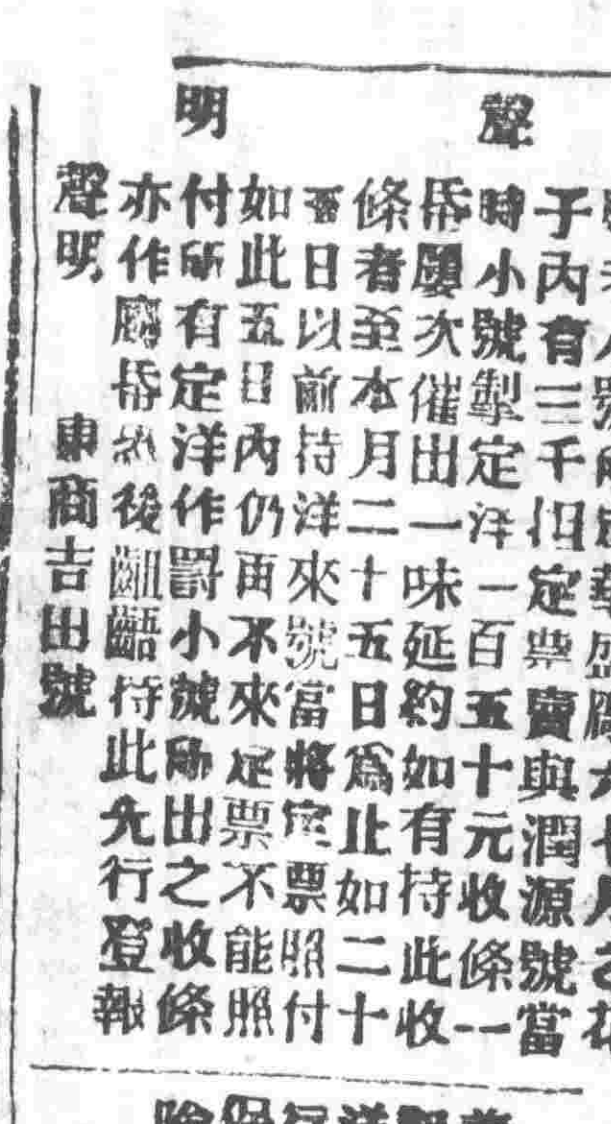 聲明
子內有三千担定票賣與潤源號當
時小號掣定洋一百五十元收條一
帋屢次催出一味延約如有持此收
條者至本月二十五日爲止如二十
五日以前持洋來號當將定票照付
如此五日內仍再不來定票不能照
付所有定洋作罰小號所出之收條
亦作廢帋後齟齬持此先行登報
聲明 東商吉田號